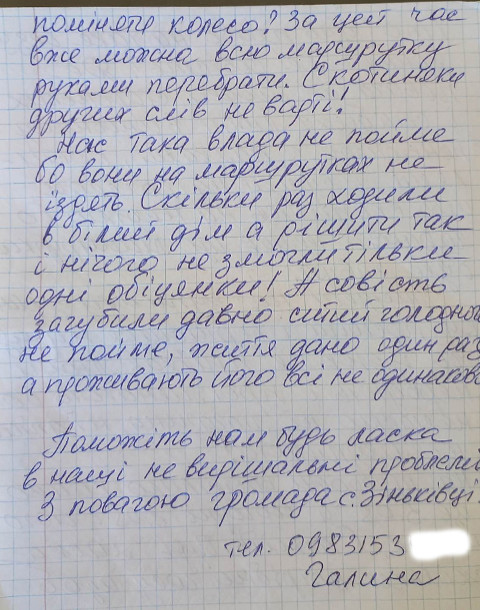 поміняти колесо? За цей час
вже можна всю маршрутку
руками перебрати. Скотиняки
других слів не варті!
Нас така влада не пойме
бо вони на маршрутках не
їздять. Скільки раз ходили
в білий дім а рішити так
і нічого не змогли тільки
одні обіцянки! А совість
загубили давно ситий голодного
не пойме, життя дано один раз
а проживають його всі не одинаково
Поможіть нам будь ласка
в насці не вирішальні проблемі
З повагою громада с. Зіньківці.
тел. 0983153
Галина